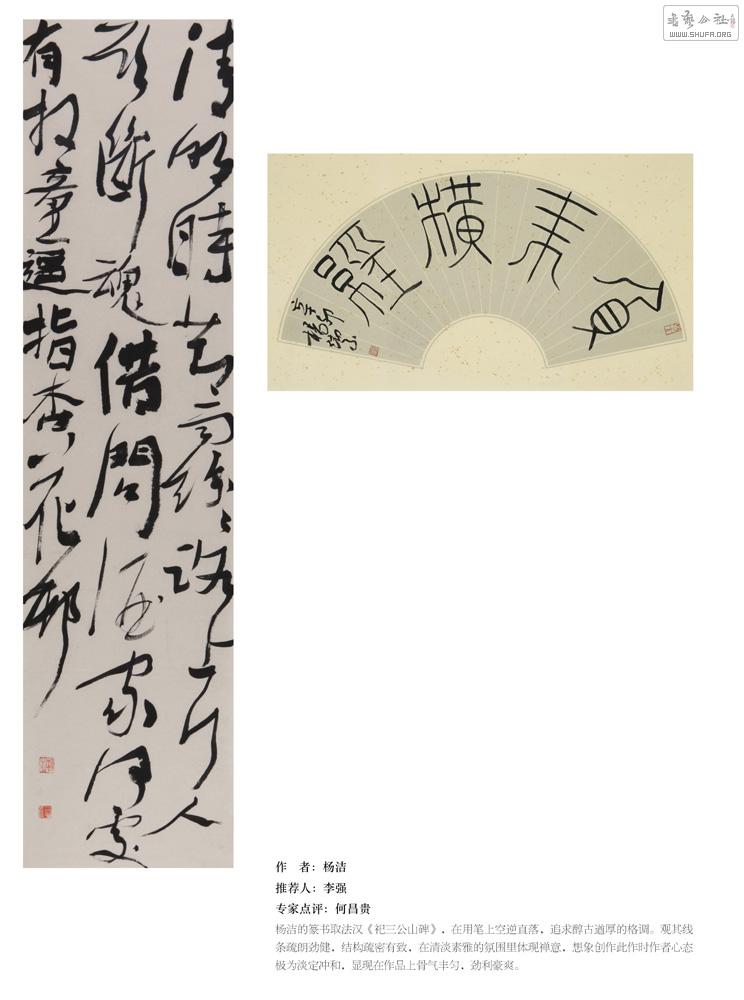 清明時节雨紛紛路上行人
欲斷魂借問酒家何處
有牧童遥指杏花邨
耒橫
辛卯
書藝公社
WWW.SHUFA.ORG
作 者：杨洁
推荐人：李强
专家点评：何昌贵
杨洁的篆书取法汉《祀三公山碑》，在用笔上空逆直落，追求醇古遒厚的格调。观其线
条疏朗劲健，结构疏密有致，在清淡素雅的氛围里体现禅意，想象创作此作时作者心态
极为淡定冲和，显现在作品上骨气丰匀，劲利豪爽。